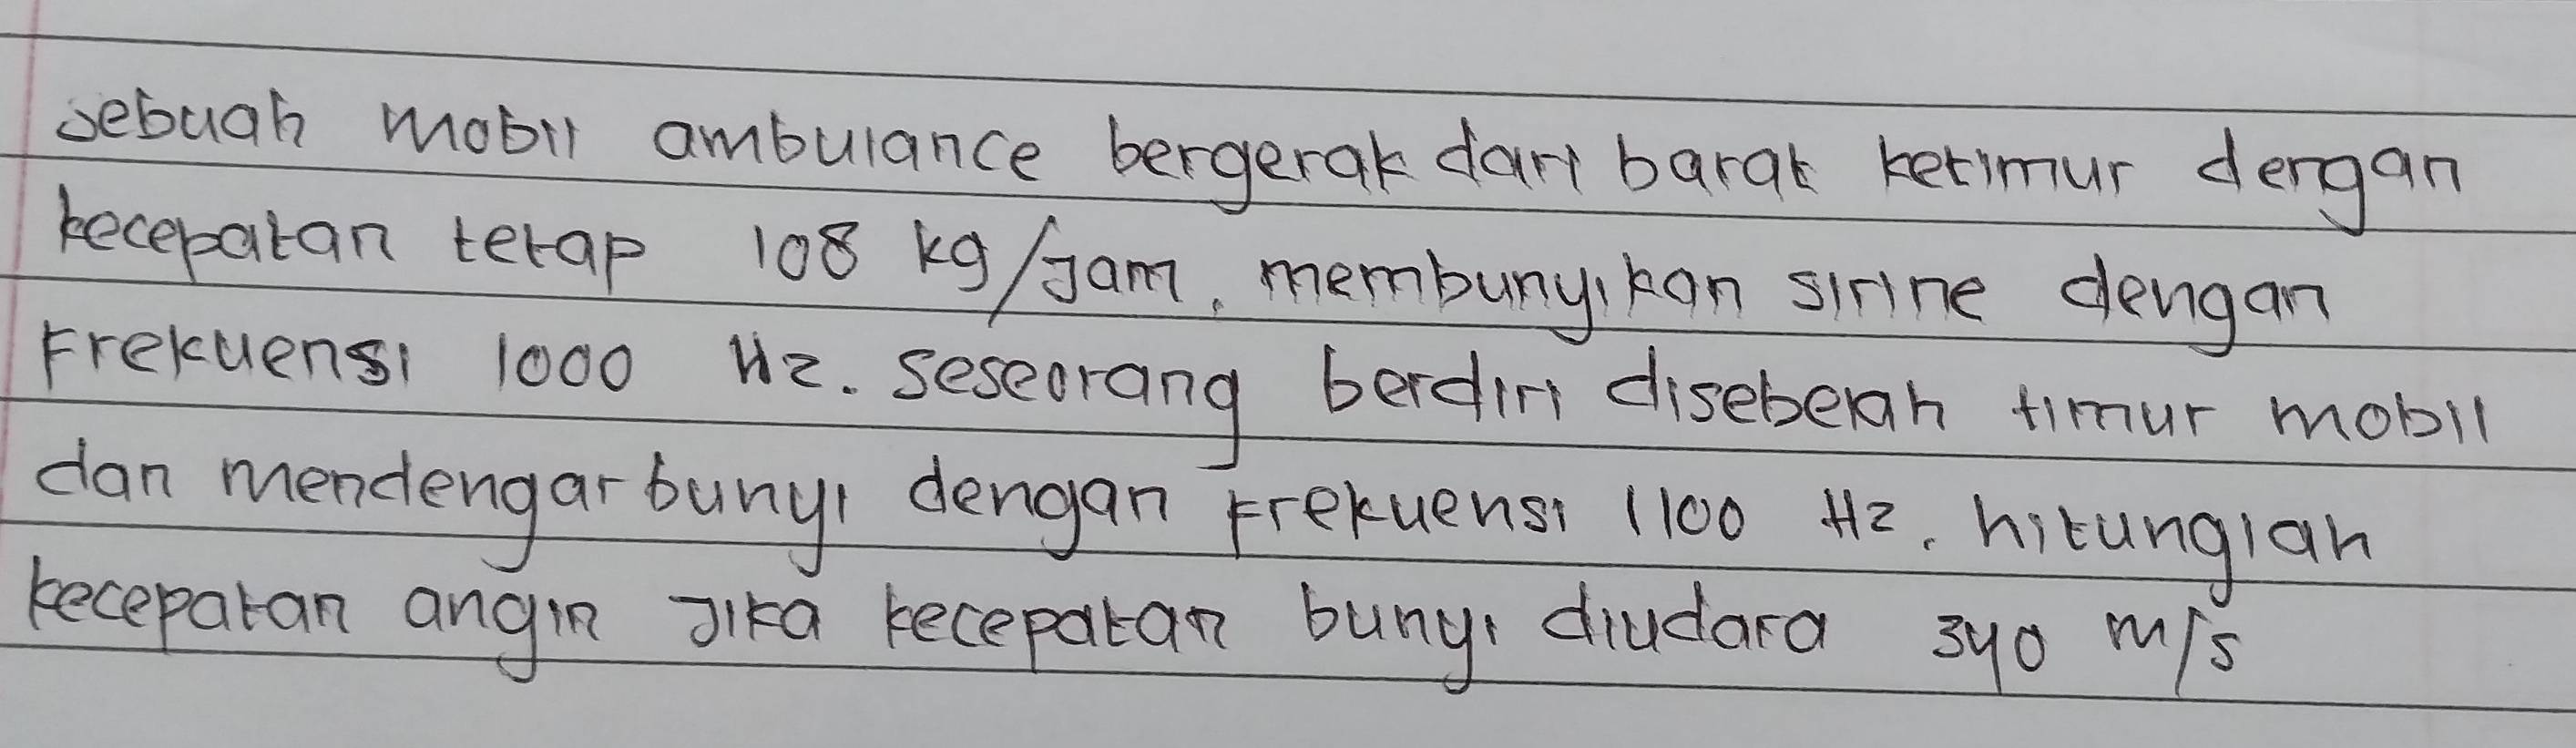 sebuah mobil ambulance bergerak dari barat ketimur dengan
kecepatan tetap 108 kg/jam, membunyikan sirine dengan
Frekuensi 1000 Hz. seseorang berdiri disebelah timur mobil
dan mendengar bunyi dengan Frekuensi 1100 Hz, hitunglah
kecepatan angin jika kecepatan bunyi diudara 340 m/s